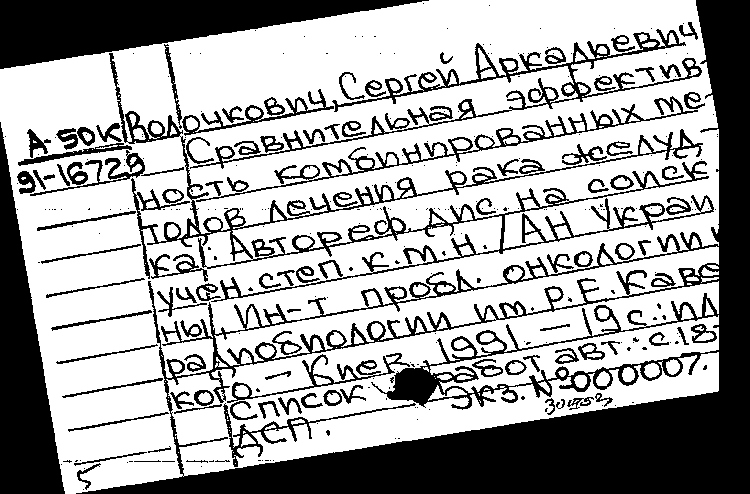 Волочкович, Сергей Аркадьевич
А-50К
91-16729
Сравнительная эффектив-
ность комбинированных ме-
тодов лечения рака желуд-
ка: Автореф. дис. на соиск.
учен. степ. к.м.н. / АН Украи
ны, Ин-т пробл. онкологии и
радиобиологии им. Р.Е. Каве
кого. — Киев, 1991. — 19 с.: ил
Список работ авт.: с.18-
ДСП. Экз. № 000007.
5